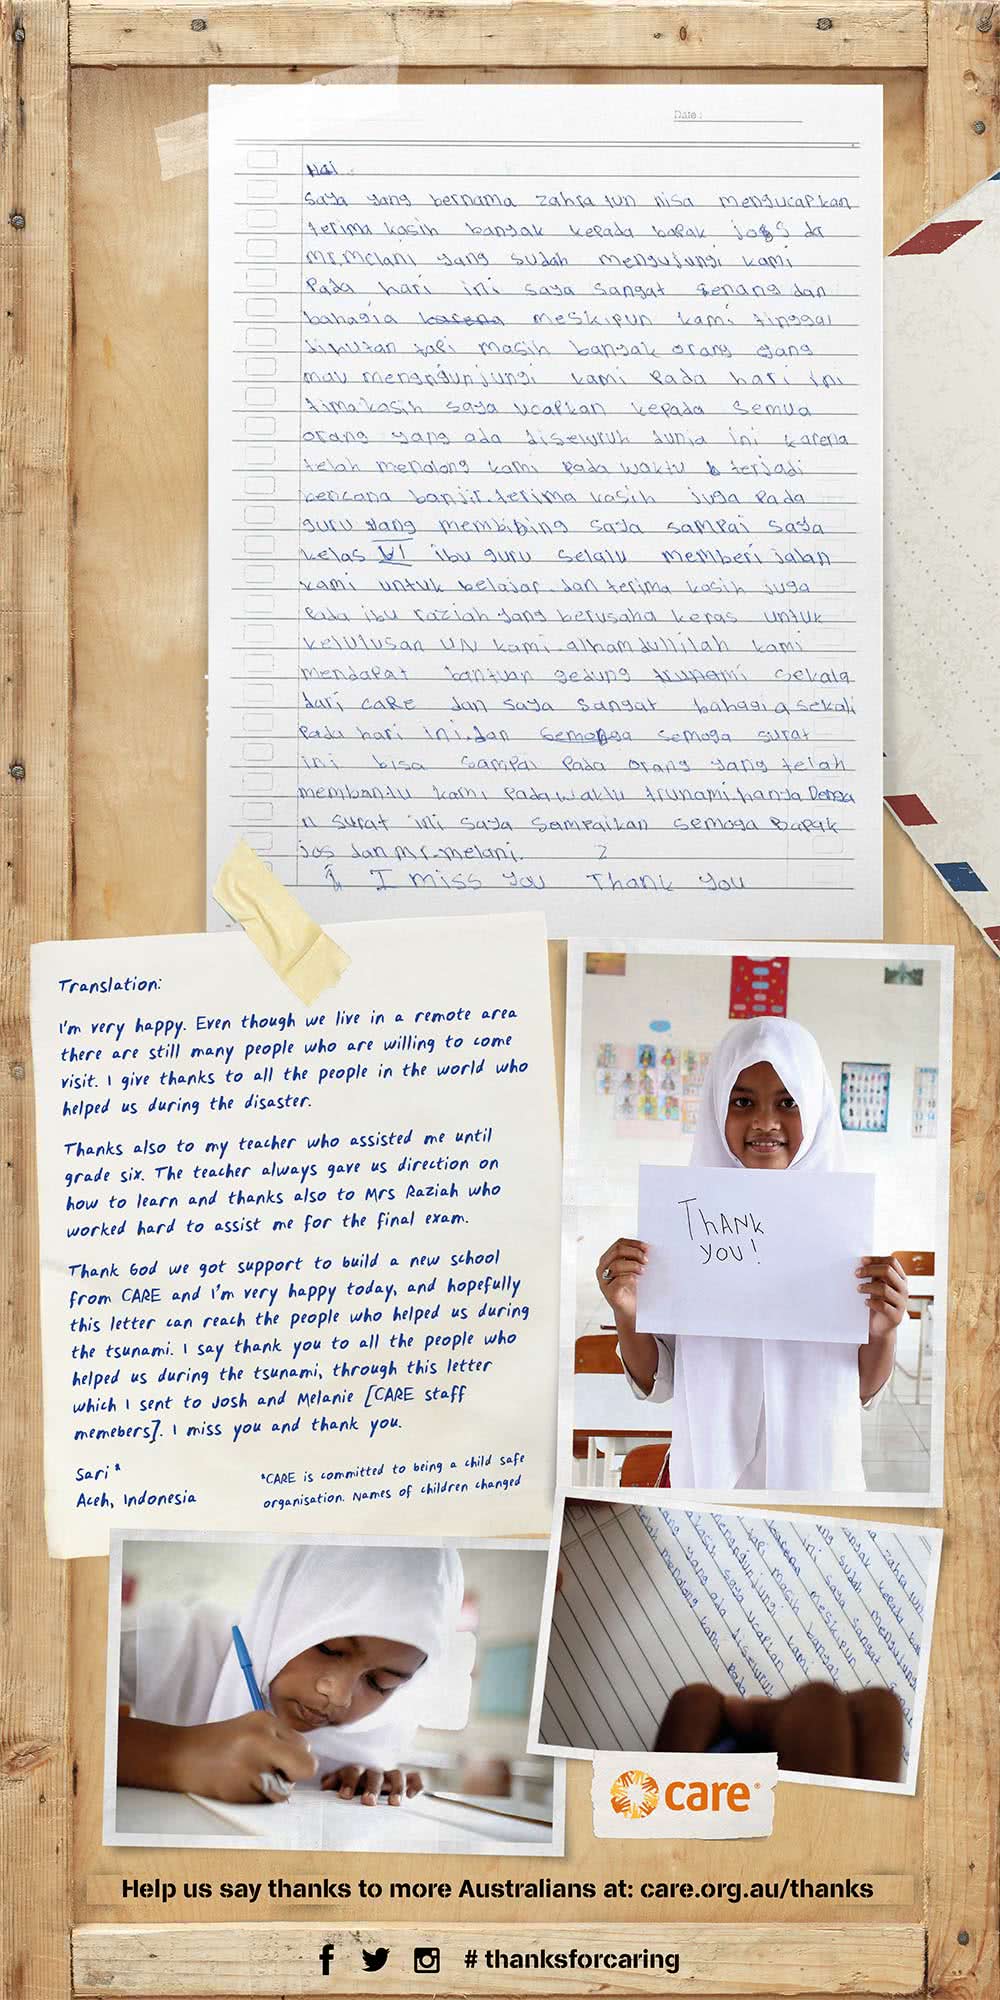 Date :
Hai
saya yang bernama zahra tun nisa mengucapkan
terima kasih banyak kepada bapak jos dr
Mr.Melani yang sudah mengujungi kami
Pada hari ini saya sangat senang dan
bahagia karena meskipun kami tinggal
dihutan tapi masih banyak orang yang
mau mengngunjungi kami Pada hari ini
timakasih saya ucapkan kepada semua
orang yang ada diseluruh dunia ini karena
telah menolong kami Pada waktu terjadi
bencana banjir.terima kasih juga Pada
guru yang membibing saya sampai saya
kelas VI ibu guru selalu memberi jalan
kami untuk belajar.dan terima kasih juga
Pada ibu raziah yang berusaha keras untuk
kelulusan UN kami.alhamdullilah kami
mendapat bantuan gedung sekola
dari care dan saya sangat bahagia sekali
Pada hari ini.dan semoga surat
ini bisa sampai Pada orang yang telah
membantu kami Pada waktu trunami.hanya Denga
n surat ini saya sampaikan semoga Bapak
jos dan Mr.melani.
I miss you Thank you
Translation:
I'm very happy. Even though we live in a remote area
there are still many people who are willing to come
visit. I give thanks to all the people in the world who
helped us during the disaster.
Thanks also to my teacher who assisted me until
grade six. The teacher always gave us direction on
how to learn and thanks also to Mrs Raziah who
worked hard to assist me for the final exam.
Thank God we got support to build a new school
from CARE and I'm very happy today, and hopefully
this letter can reach the people who helped us during
the tsunami. I say thank you to all the people who
helped us during the tsunami, through this letter
which I sent to Josh and Melanie [CARE staff
memebers]. I miss you and thank you.
Sari*
Aceh, Indonesia
*CARE is committed to being a child safe
organisation. Names of children changed
THANK
YOU!
care®
Help us say thanks to more Australians at: care.org.au/thanks
# thanksforcaring